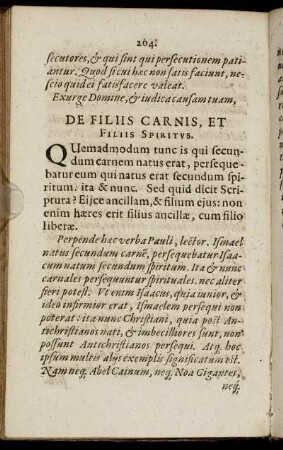 204.
secutores, & qui sint qui persecutionem pati-
antur. Quod si cui hæc non satis faciunt, ne-
scio quid ei satisfacere valeat.
Exurge Domine, & iudica causam tuam,
DE FILIIS CARNIS, ET
FILIIS SPIRITVS.
QUemadmodum tunc is qui secun-
dum carnem natus erat, perseque-
batur eum qui natus erat secundum spi-
ritum. ita & nunc. Sed quid dicit Scri-
ptura? Eijce ancillam, & filium ejus: non
enim hæres erit filius ancillæ, cum filio
liberæ.
Perpende hæc verba Pauli, lector. Ismael
natus secundum carnē, persequebatur Isaa-
cum natum secundum spiritum. Ita & nunc
carnales persequuntur spirituales. nec aliter
fieri potest. Vt enim Isaacus, quia iunior, &
ideo infirmior erat, Ismaelem persequi non
poterat: ita nunc Christiani, quia post An-
tichristianos nati, & imbecilliores sunt, non
possunt Antichristianos persequi. Atq. hoc
ipsum multis alijs exemplis significatum est.
Nam neq. Abel Cainum, neq. Noa Gigantes,
neq.